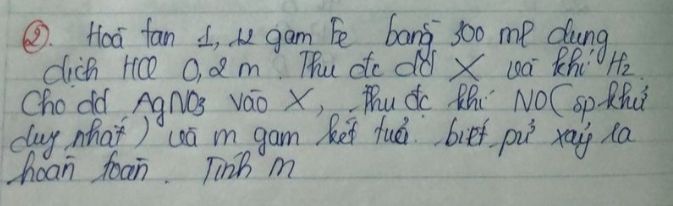 ②. Hoà tan 1,12 gam Fe bằng 300 ml dung
dịch HCl 0,2 m. Thu đc dd X và khí H2.
Cho dd AgNO3 vào X, thu đc khí NO (sp khử
duy nhất) và m gam kết tuả. biết pứ xảy ra
hoàn toàn. Tính m